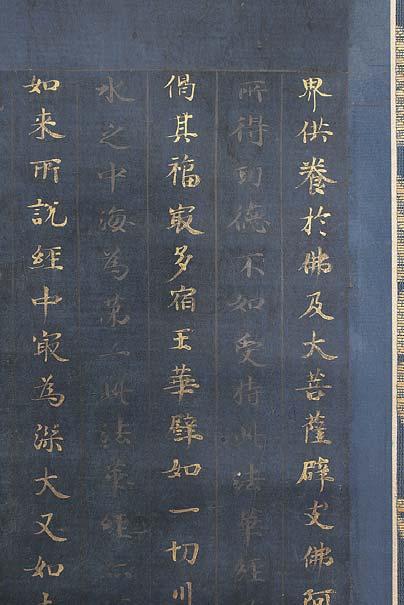 界供養於佛及大菩薩辟支佛阿
所得功德不如受持此法華經
偈其福㝡多宿王華譬如一切川
水之中海為第一此法華經亦
如来所說經中㝡為深大又如土